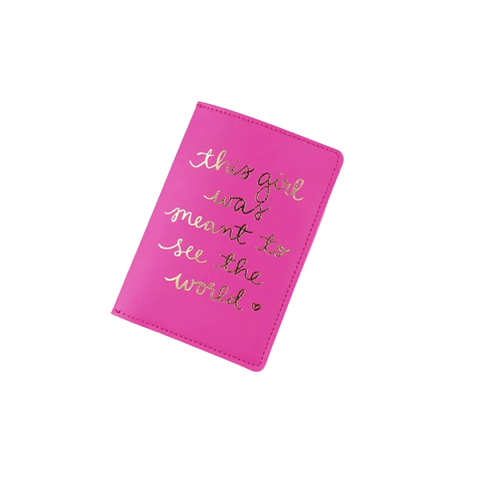 this girl
was
meant to
see the
world ♥